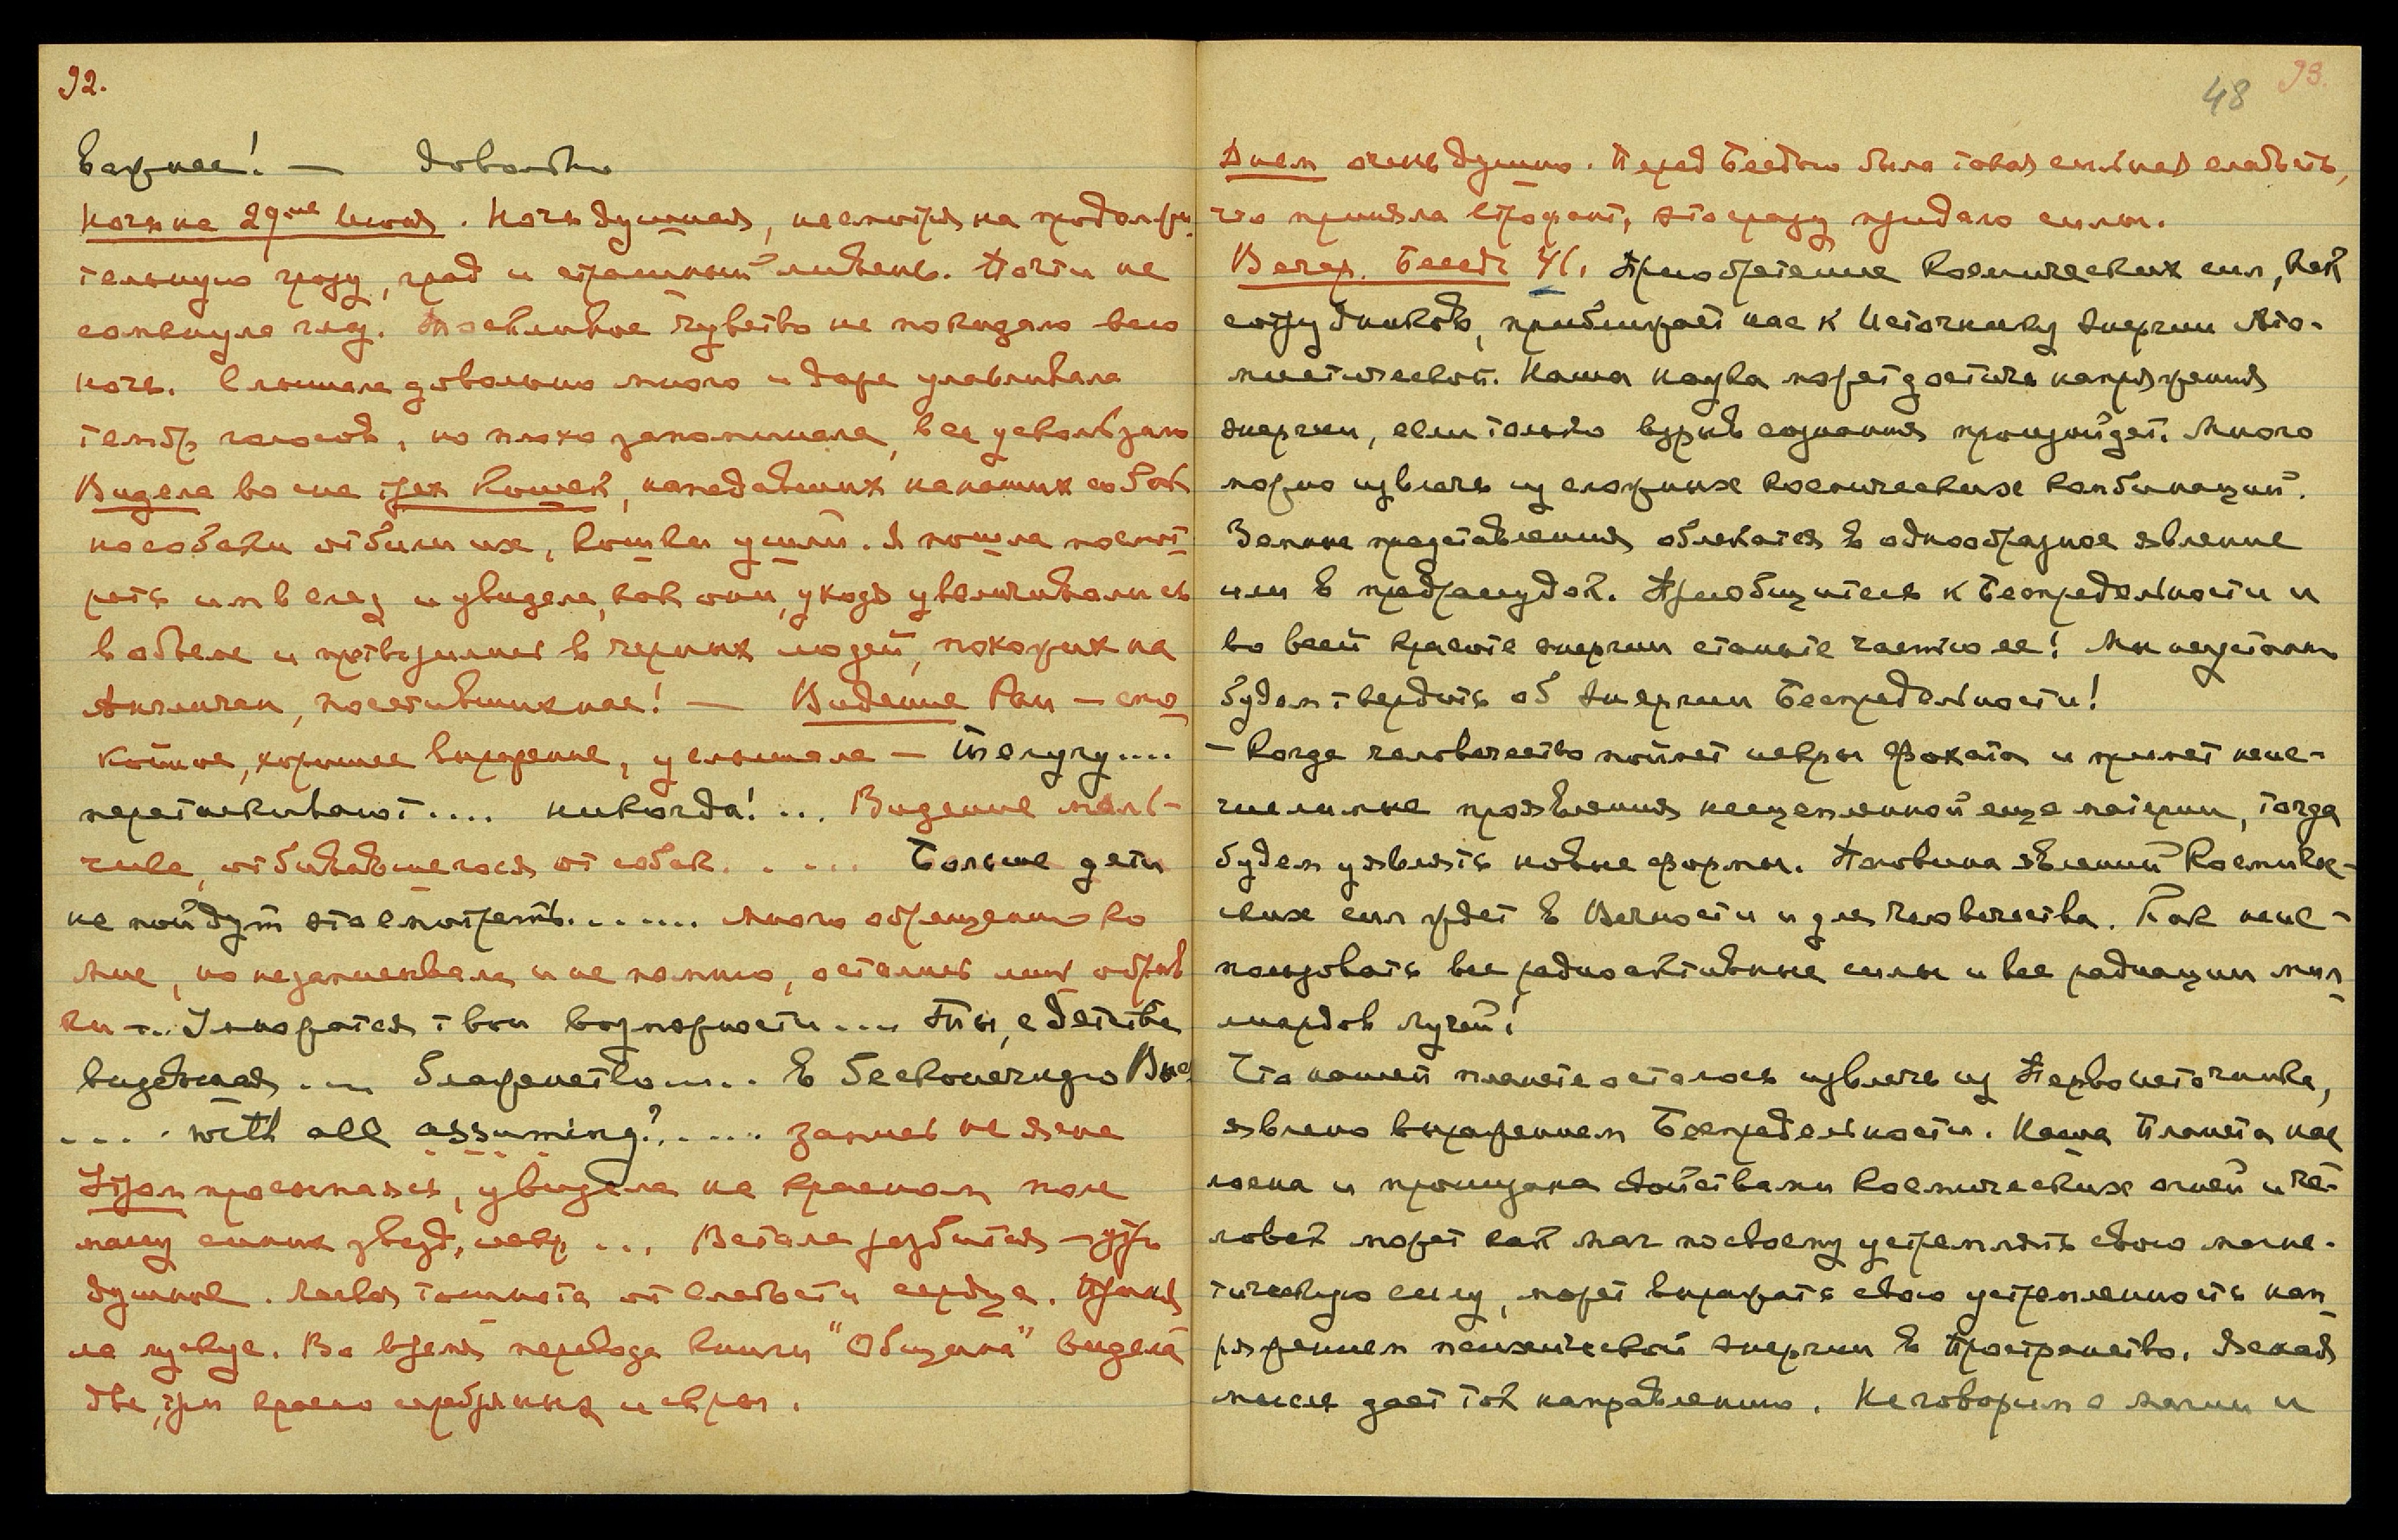 92.
важнее! — довольно
Ночь на 29ое Июля. Ночь душная, несмотря на продолжи
тельную грозу, град и страшный ливень. Почти не
сомкнула глаз. Тоскливое чувство не покидало всю
ночь. Слышала довольно много и даже улавливала
тембр голосов, но плохо запоминала, все ускользало
Видела во сне трех кошек, нападавших на наших собак
но собаки отбили их, кошки ушли. Я пошла посмот
реть им в след и увидела, как они, уходя увеличивались
в объеме и претворились в черных людей, похожих на
Англичан, посетивших нас! — Видение Рам — спо
койное, хорошее выражение, услышала —
перетаскивают.... никогда!... Видение маль-
чика, отбивавшегося от собак. . ... Больше дети
не пойдут это смотреть....... Много обращений ко
мне, но не записывала и не помню, остались лишь обрыв
ки ... Умножатся твои возможности.... Ты, с детства
виденная .... блаженство..... В бесконечную
.... with all assuming?..... запись не ясна
Утром просыпаясь, увидела на красном поле
массу синих звезд, искр ... Встала разбитая — утро
душное. Легкая тошнота от слабости сердца. Приня
ла мускус. Во время перевода книги "Община" видела
две, три красно серебряных искры.
48 93.
Днем очень душно. Перед Беседою была такая сильная слабость,
что приняла строфант, это сразу придало силы.
Вечер. Беседа Ч(. Приобретение космических сил, как
сотрудников, приближает нас к Источнику энергии Ато-
мистической. Наша наука может достичь напряжения
энергии, если только взрыв сознания произойдет. Много
можно извлечь из сложных космических комбинаций.
Земные представления облекаются в однообразное явление
или в предрассудок. Приобщитесь к Беспредельности и
во всей красоте энергии станьте частью ее! Мы неустанно
будем твердить об энергии Беспредельности!
— Когда человечество поймет искры Фохата и примет неис-
числимые проявления несцепленной еще материи, тогда
будем уявлять новые формы. Половина явлений Космичес-
ких сил ждет в Вечности и для человечества. Как неис-
пользовать все радиоактивные силы и все радиации мил
лиардов лучей!
Что нашей планете осталось извлечь из Первоисточника,
явлено выражением Беспредельности. Наша Планета нас
лоена и пронизана свойствами космических огней и че-
ловек может как маг по своему устремлять свою магне-
тическую силу, может выражать свою устремленность нап
ряжением психической энергии в Пространство. Всякая
мысль дает ток направлению. Не говорим о магии и